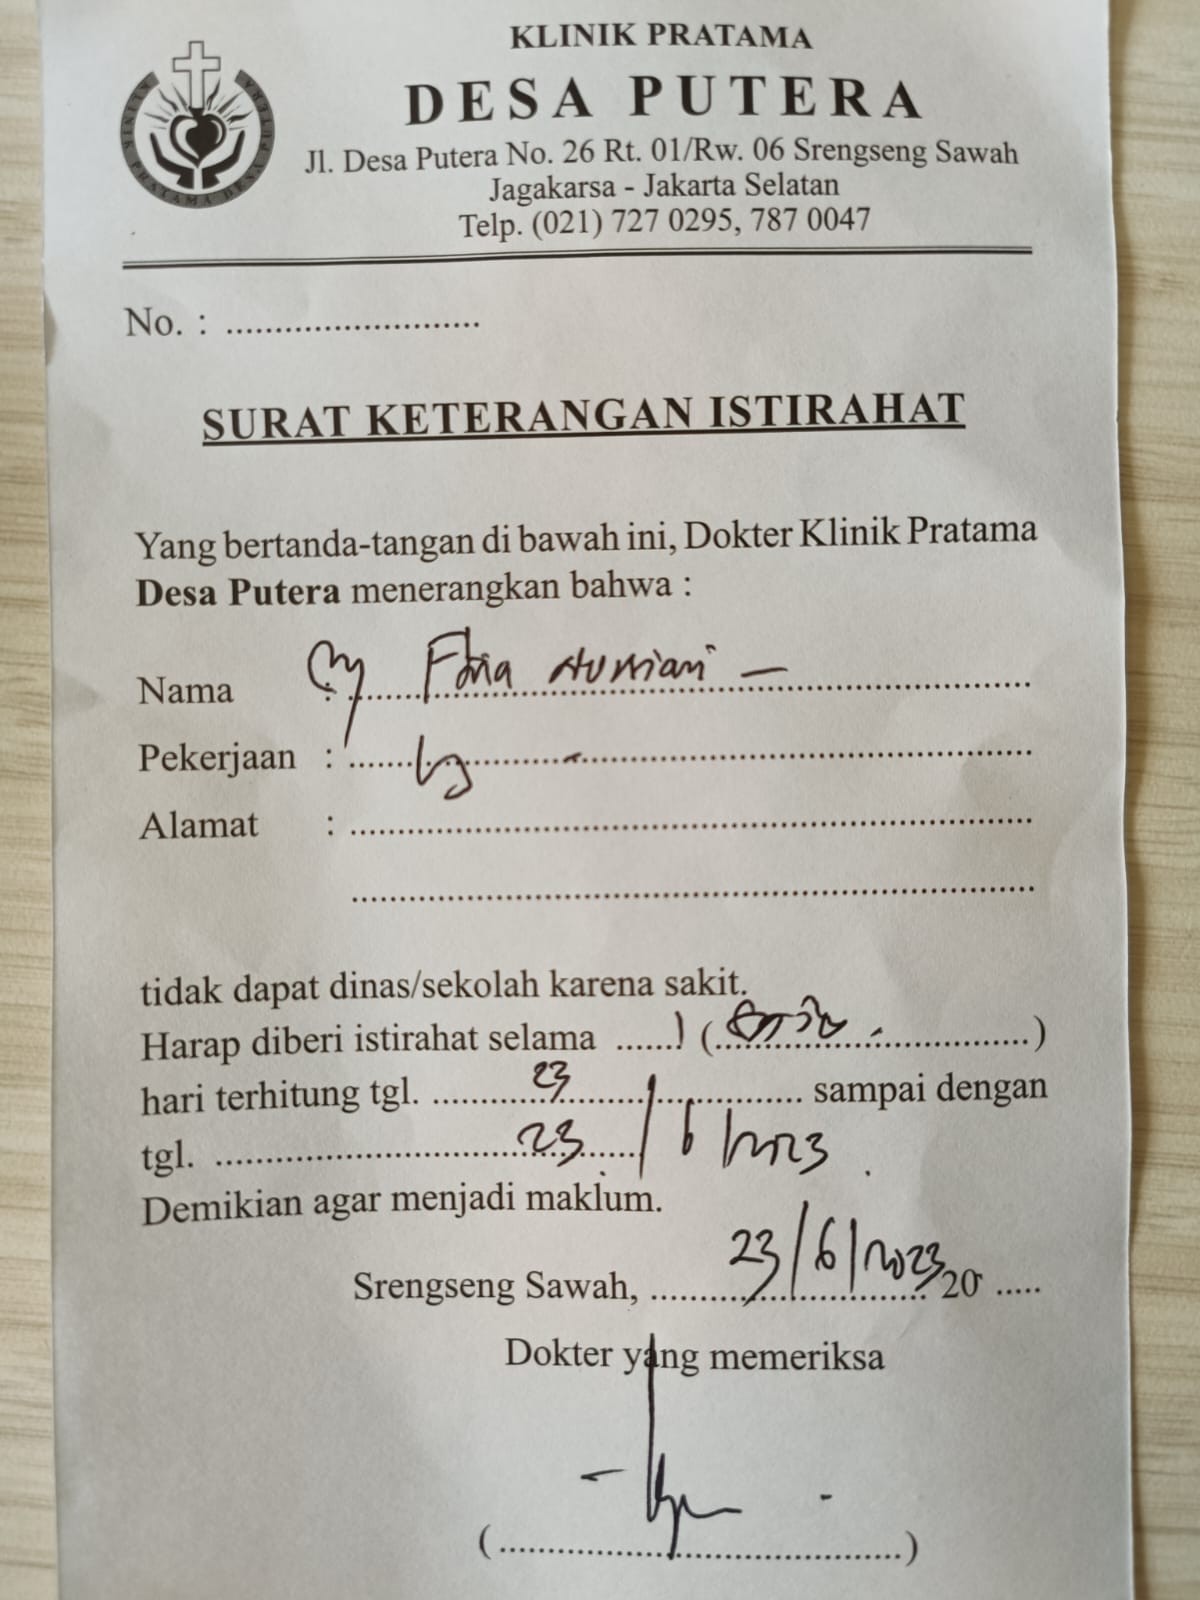 KLINIK PRATAMA
DESA PUTERA
Jl. Desa Putera No. 26 Rt. 01/Rw. 06 Srengseng Sawah
Jagakarsa - Jakarta Selatan
Telp. (021) 727 0295, 787 0047
KLINIK PRATAMA DESA PUTERA
No. : ..........................
SURAT KETERANGAN ISTIRAHAT
Yang bertanda-tangan di bawah ini, Dokter Klinik Pratama
Desa Putera menerangkan bahwa :
Nama :
Pekerjaan :
Alamat :
tidak dapat dinas/sekolah karena sakit.
Harap diberi istirahat selama ...... 1 ( .......... )
hari terhitung tgl. 23 sampai dengan
tgl. 23/6/2023
Demikian agar menjadi maklum.
Srengseng Sawah, 23/6/2023 20 .....
Dokter yang memeriksa
(..........................................)